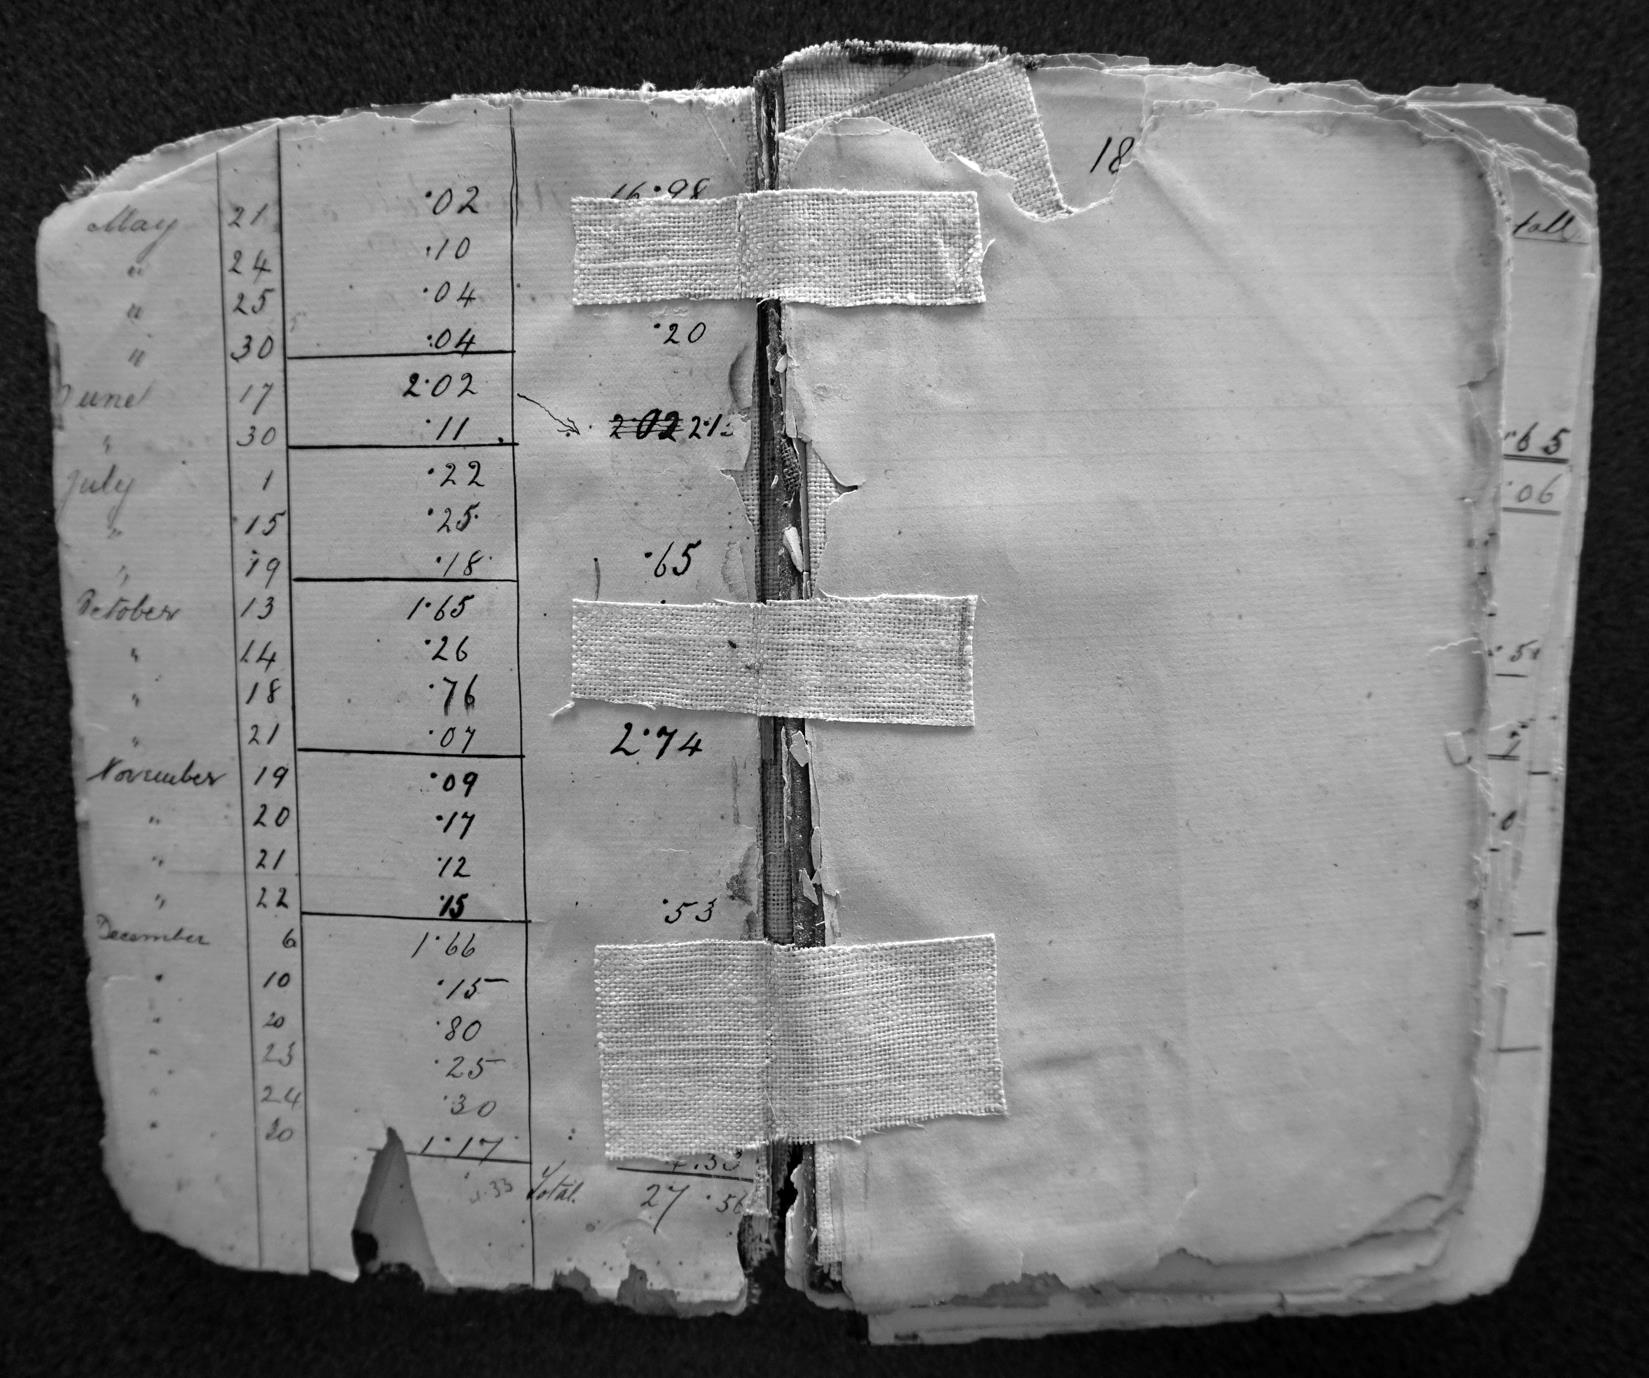 16.98
May 21 .02
" 24 .10
" 25 .04
" 30 .04 .20
June 17 2.02
" 30 .11 202 2.13
July 1 .22
" 15 .25
" 19 .18 .65
October 13 1.65
" 14 .26
" 18 .76
" 21 .07 2.74
November 19 .09
" 20 .17
" 21 .12
" 22 .15 .53
December 6 1.66
" 10 .15
" 20 .80
" 23 .25
" 24 .30
" 30 1.17 4.33
4.33 Total. 27.56
18
.65
.06